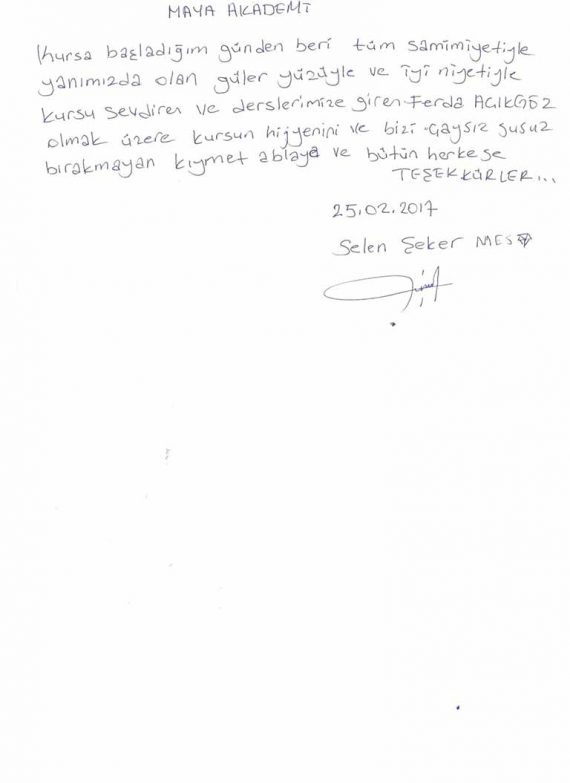 MAYA AKADEMİ
Kursa başladığım günden beri tüm samimiyetiyle
yanımızda olan güler yüzüyle ve iyi niyetiyle
kursu sevdiren ve derslerimize giren Ferda AÇIKGÖZ
olmak üzere kursun hijyenini ve bizi çaysız susuz
bırakmayan kıymet ablaya ve bütün herkese
TEŞEKKÜRLER...
25.02.2017
Selen Şeker MES